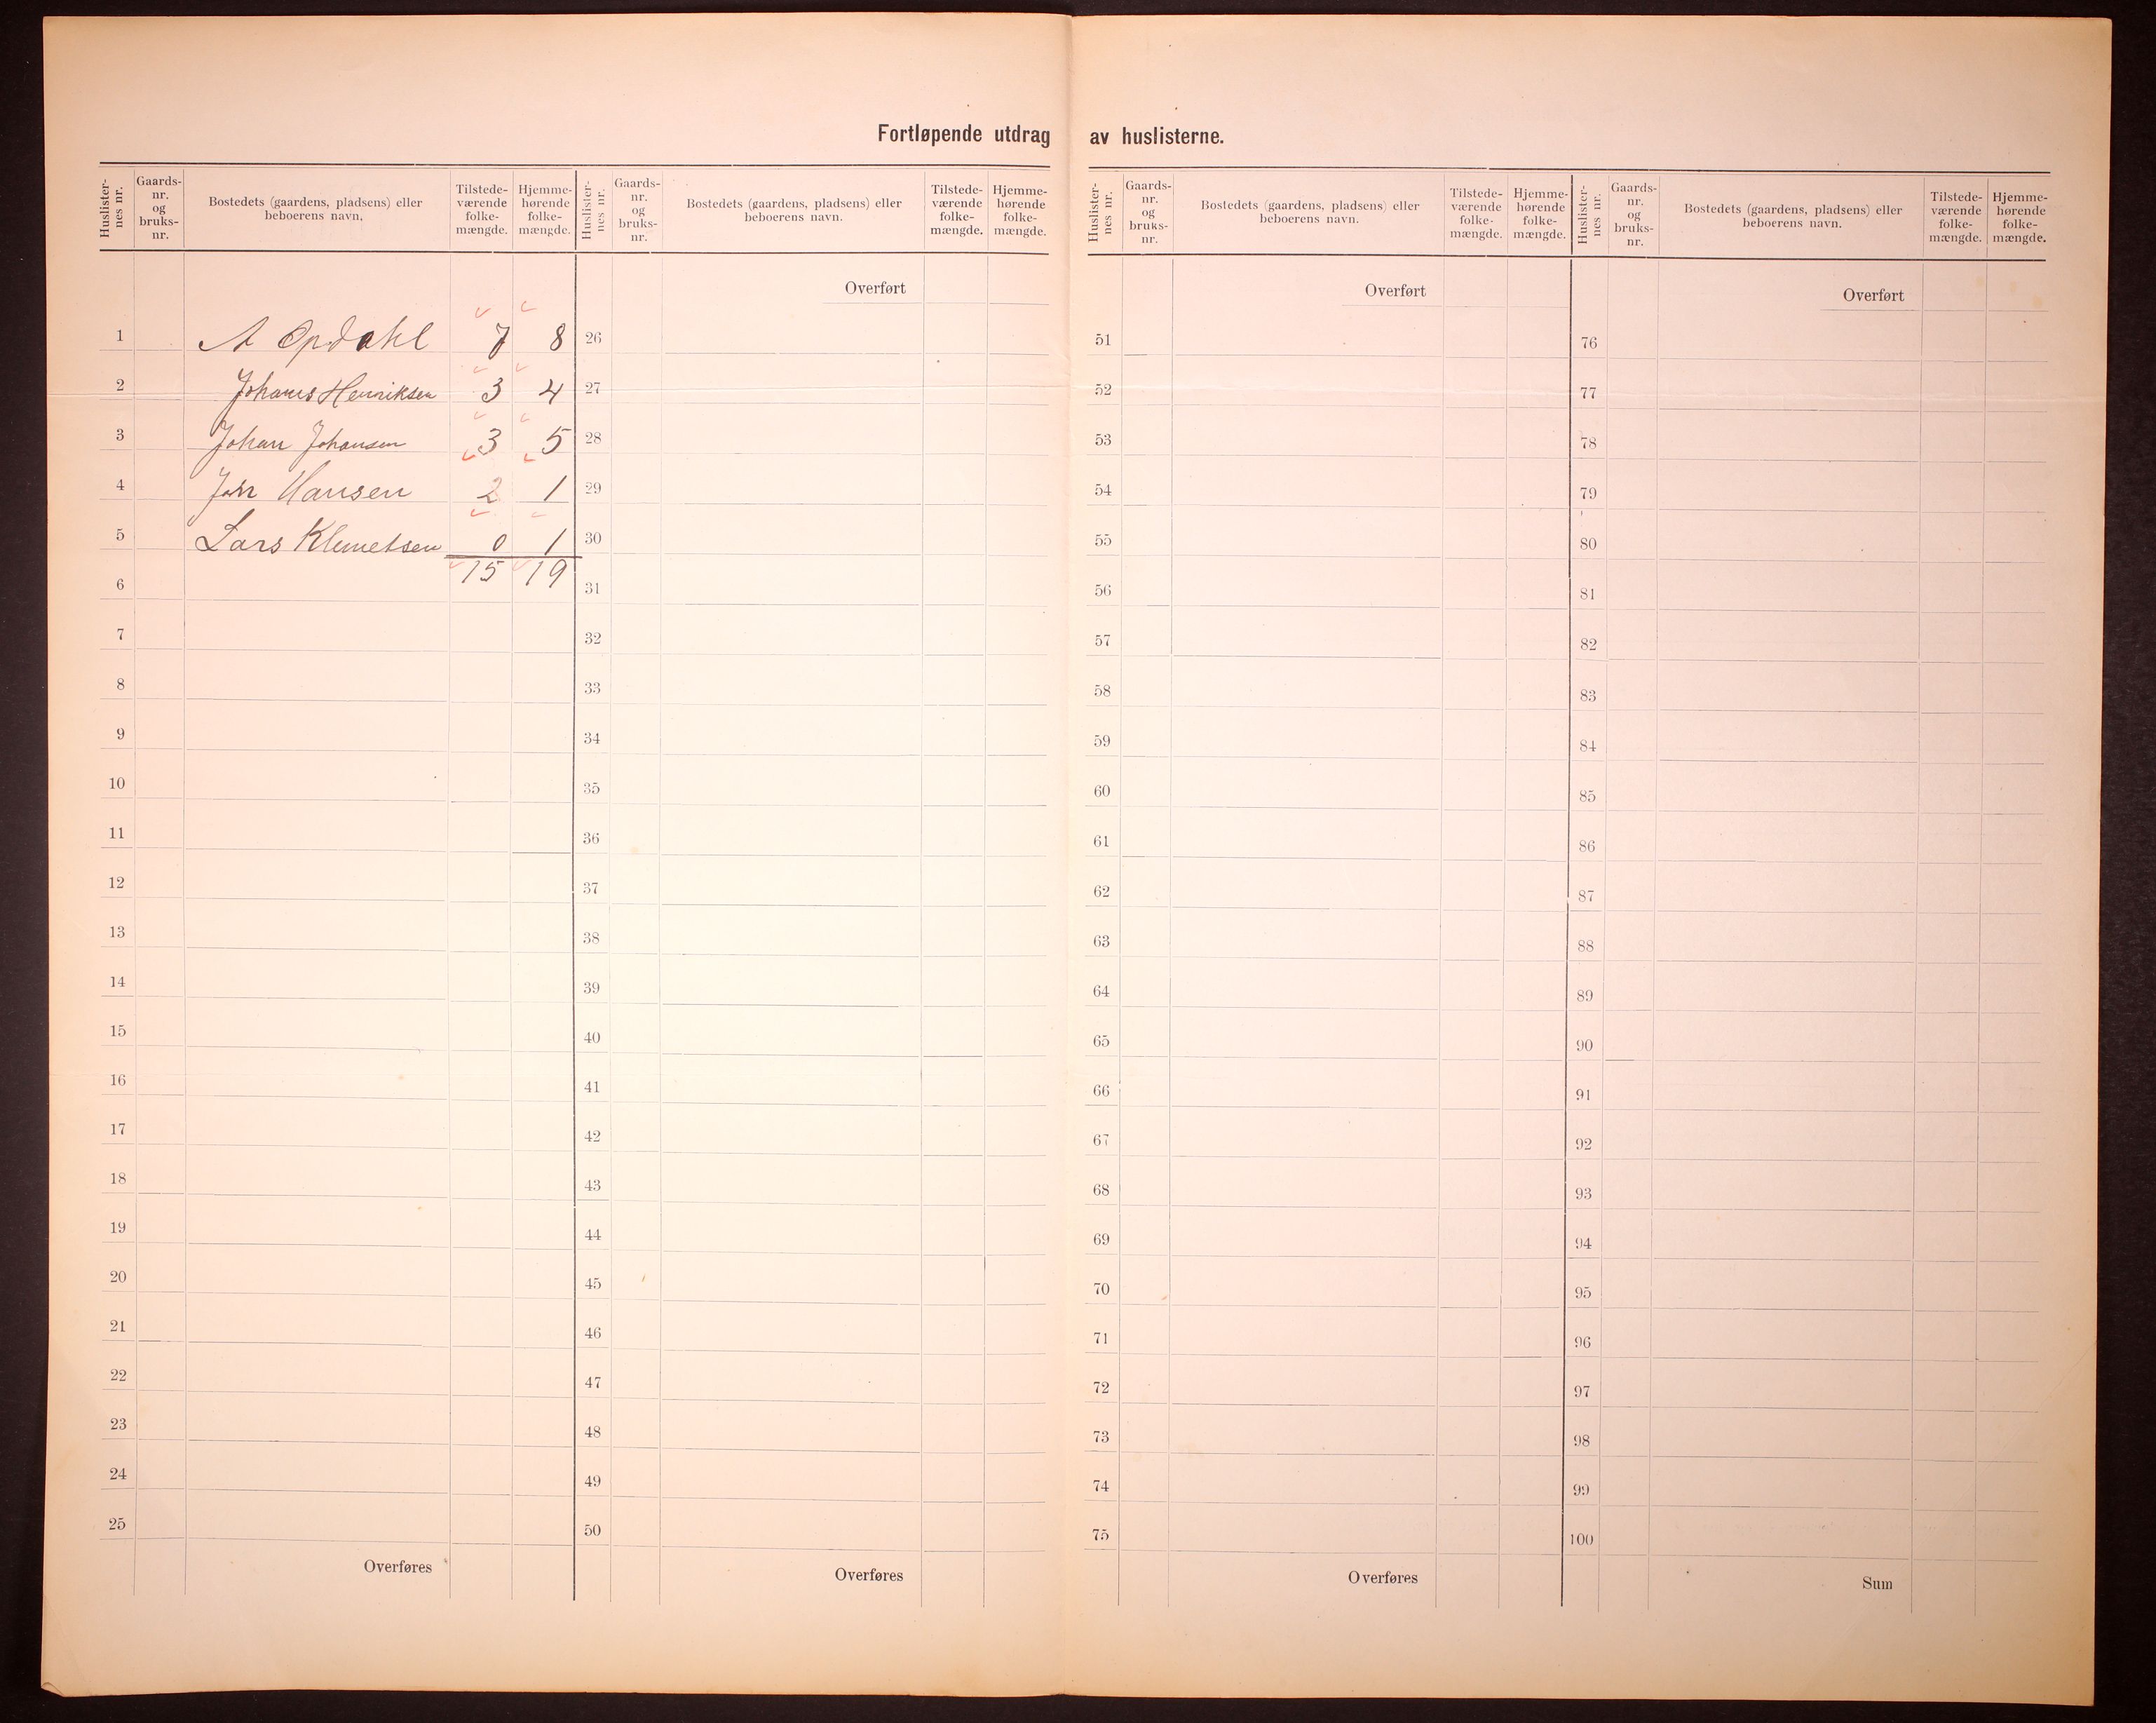 Fortløpende utdrag av huslisterne.
Huslister-
nes nr.
Gaards-
nr.
og
bruks-
nr.
Bostedets (gaardens, pladsens) eller
beboerens navn.
Tilstede-
værende
folke-
mængde.
Hjemme-
hørende
folke-
mængde.
Huslister-
nes nr.
Gaards-
nr.
og
bruks-
nr.
Bostedets (gaardens, pladsens) eller
beboerens navn.
Tilstede-
værende
folke-
mængde.
Hjemme-
hørende
folke-
mængde.
Huslister-
nes nr.
Gaards-
nr.
og
bruks-
nr.
Bostedets (gaardens, pladsens) eller
beboerens navn.
Tilstede-
værende
folke-
mængde.
Hjemme-
hørende
folke-
mængde.
Huslister-
nes nr.
Gaards-
nr.
og
bruks-
nr.
Bostedets (gaardens, pladsens) eller
beboerens navn.
Tilstede-
værende
folke-
mængde.
Hjemme-
hørende
folke-
mængde.
1 A Opdahl 7 8
2 Johans Henriksen 3 4
3 Johan Johansen 3 5
4 Hansen 2 1
5 Lars Klemetsen 0 1
15 19
6
7
8
9
10
11
12
13
14
15
16
17
18
19
20
21
22
23
24
25
Overføres
Overført
26
27
28
29
30
31
32
33
34
35
36
37
38
39
40
41
42
43
44
45
46
47
48
49
50
Overføres
Overført
51
52
53
54
55
56
57
58
59
60
61
62
63
64
65
66
67
68
69
70
71
72
73
74
75
Overføres
Overført
76
77
78
79
80
81
82
83
84
85
86
87
88
89
90
91
92
93
94
95
96
97
98
99
100
Sum